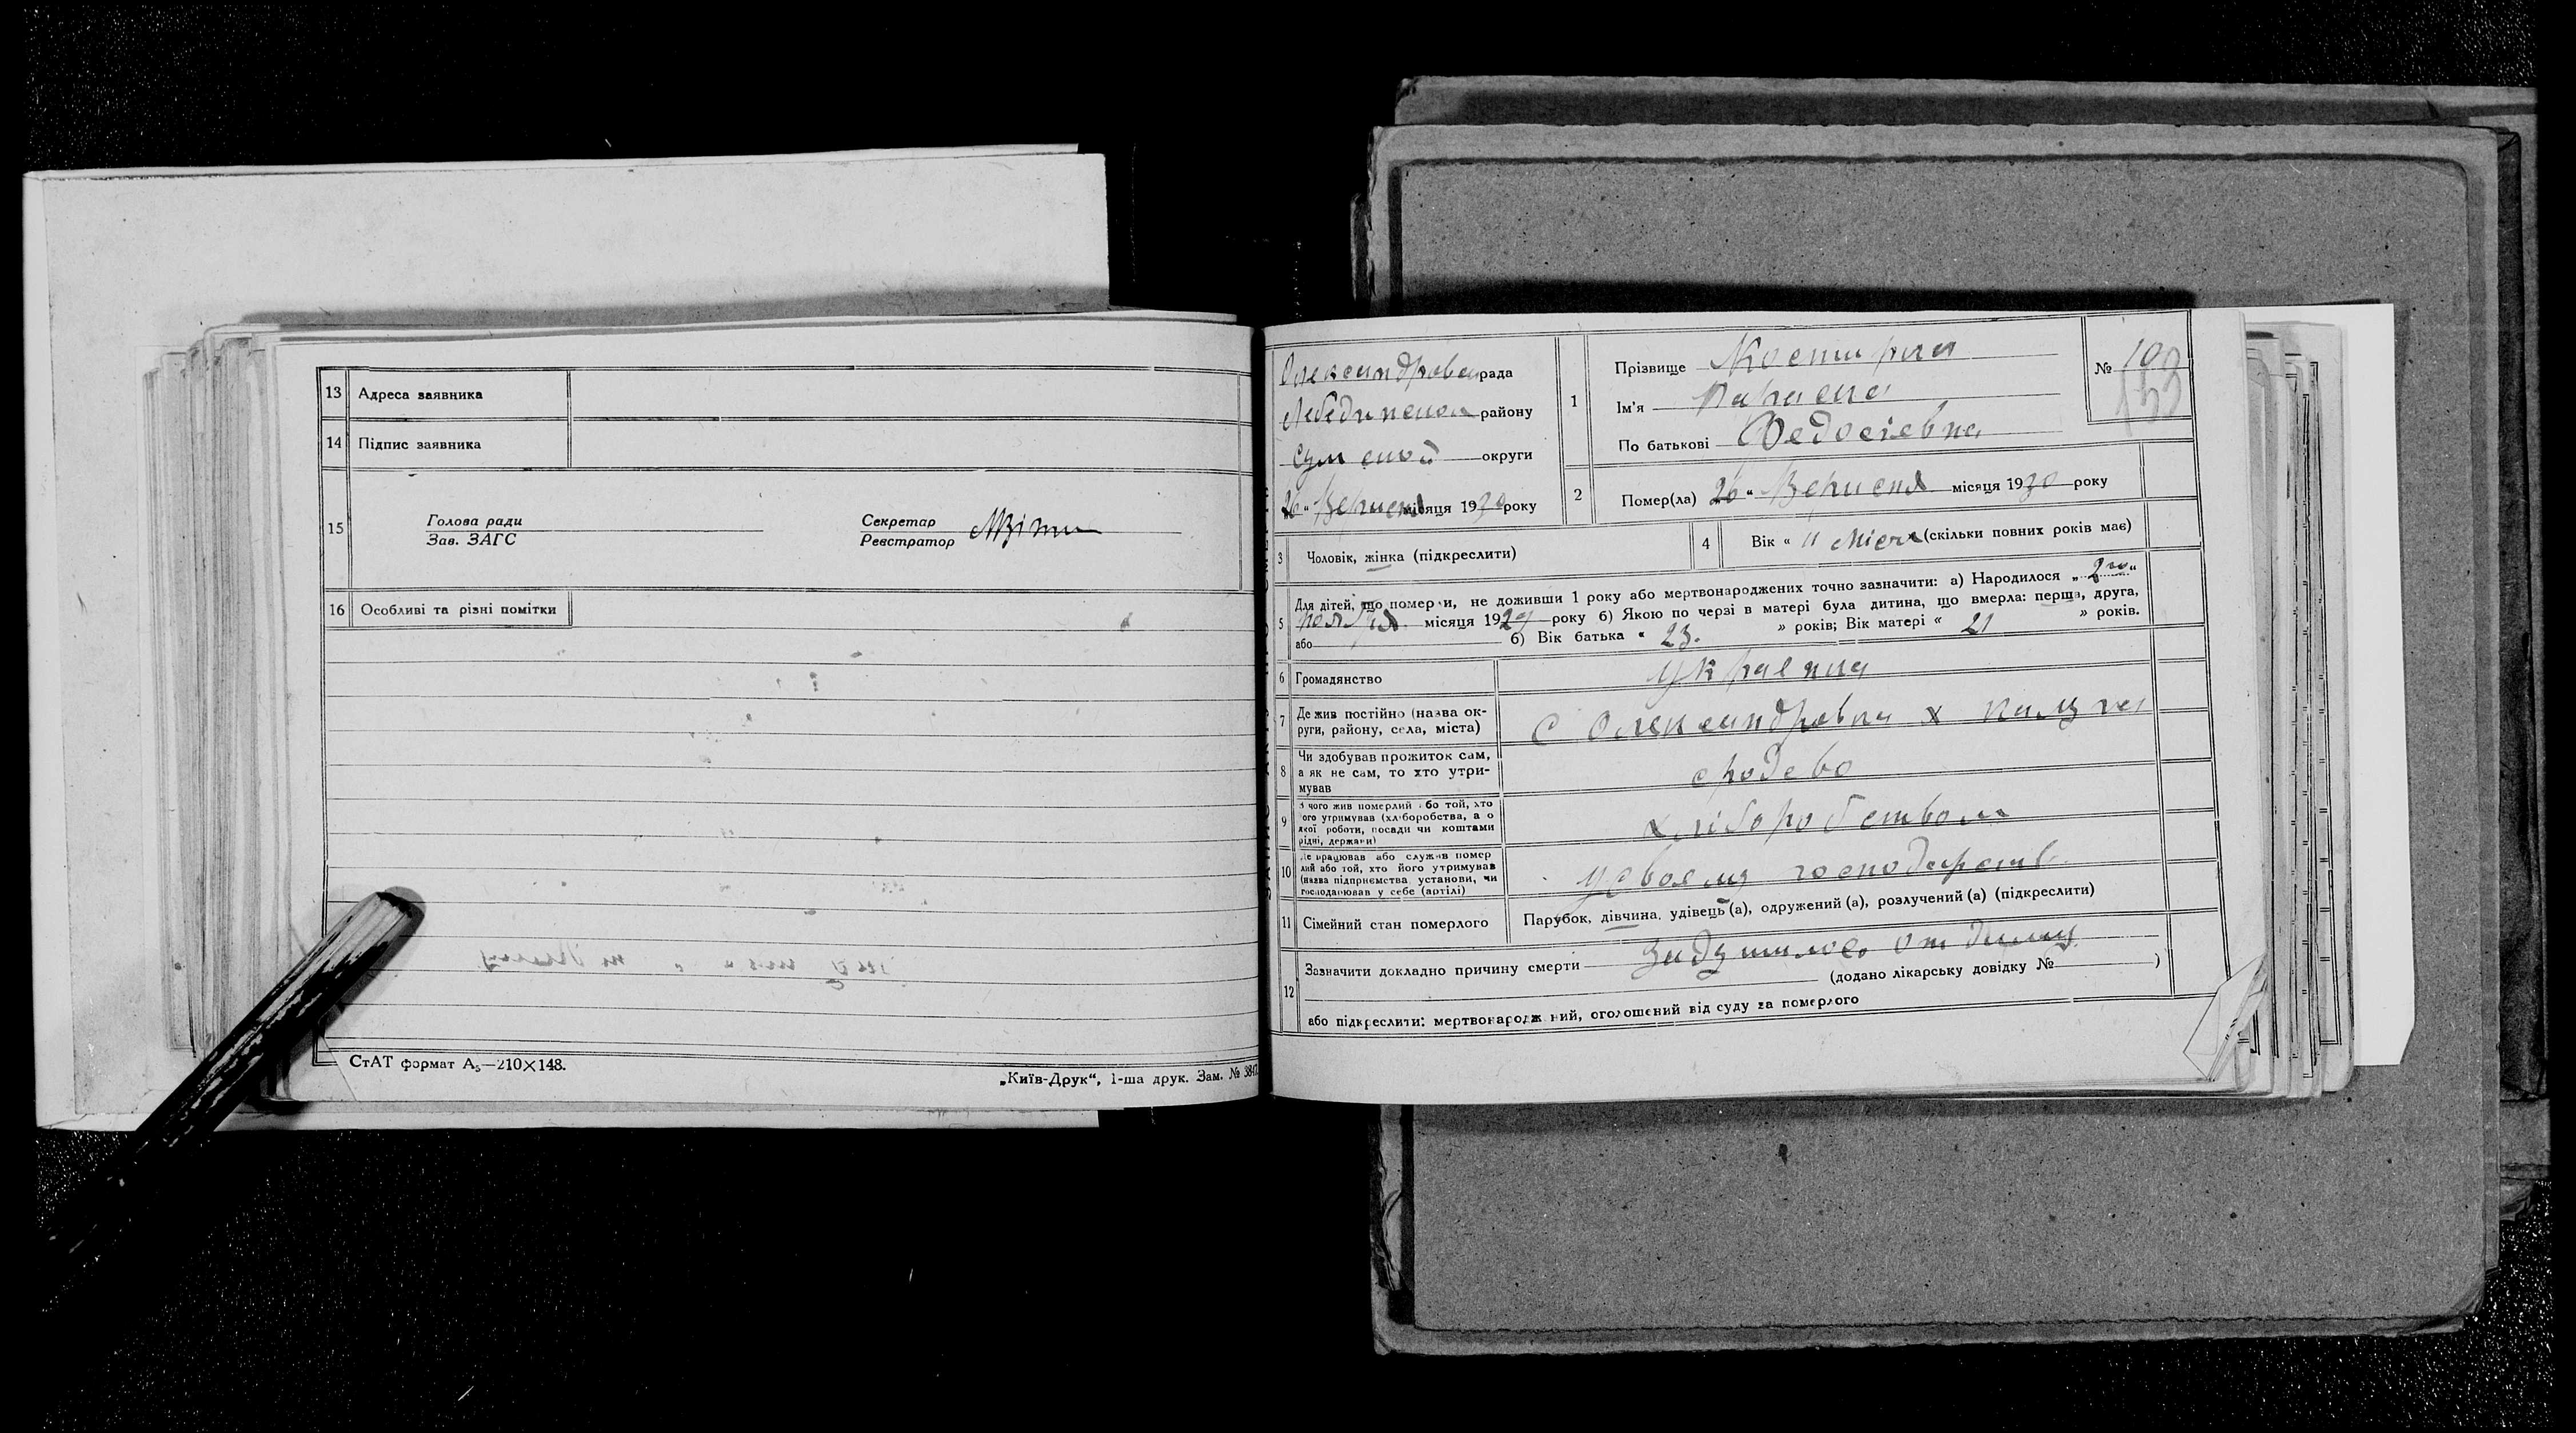 13 Адреса заявника
14 Підпис заявника
15 Голова ради
Зав. ЗАГС
Секретар
Реєстратор
16 Особливі та різні помітки
СтАТ формат А₅—210×148.
„Київ-Друк“, 1-ша друк. Зам. №
рада
району
округи
26 " Вересня місяця 1930 року
1 Прізвище
Ім'я
По батькові Федосієвна
№ 100
2 Помер(ла) 26 " Вересня місяця 1930 року
3 Чоловік, жінка (підкреслити)
4 Вік « 11 Місяц (скільки повних років має)
5 Для дітей, що померли, не доживши 1 року або мертвонароджених точно зазначити: а) Народилося „ 2го “
місяця 1929 року б) Якою по черзі в матері була дитина, що вмерла: перша, друга,
або б) Вік батька « 23. » років; Вік матері « 21 » років.
6 Громадянство
7 Де жив постійно (назва округи, району, села, міста) с Олександровка х
8 Чи здобував прожиток сам, а як не сам, то хто утримував
9 З чого жив померлий або той, хто його утримував (хліборобства, а о якої роботи, посади чи коштами рідні, держави) хліборобством
10 Де працював або служив померлий або той, хто його утримував (назва підприємства установи, чи господарював у себе (артілі) усвоему господарстві
11 Сімейний стан померлого Парубок, дівчина, удівець (а), одружений (а), розлучений (а) (підкреслити)
12 Зазначити докладно причину смерти Задушилось от диму
(додано лікарську довідку № )
або підкреслити: мертвонароджений, оголошений від суду за померлого